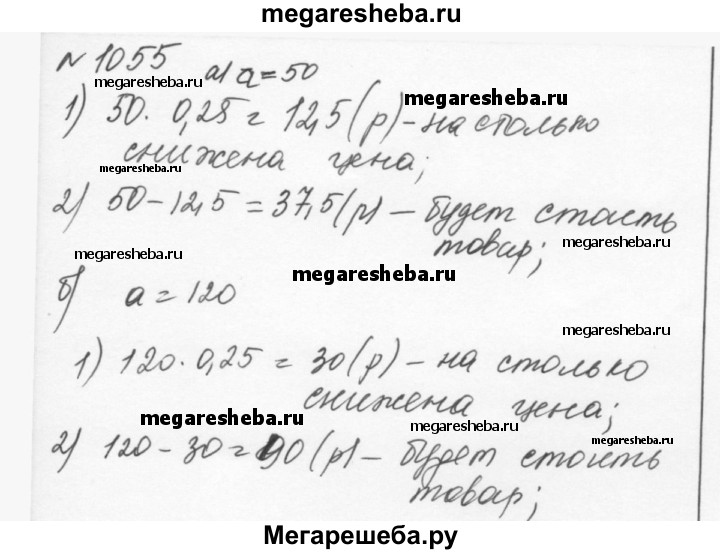 megaresheba.ru
№ 1055
megaresheba.ru а) a = 50
megaresheba.ru
1) 50 · 0,25 = 12,5 (р) – на столько
megaresheba.ru снижена цена;
2) 50 – 12,5 = 37,5 (р) – будет стоить
megaresheba.ru товар; megaresheba.ru
megaresheba.ru
б) a = 120
megaresheba.ru
1) 120 · 0,25 = 30 (р) – на столько
снижена цена;
megaresheba.ru megaresheba.ru megaresheba.ru
2) 120 – 30 = 90 (р) – будет стоить
товар;
megaresheba.ru
Мегарешеба.ру